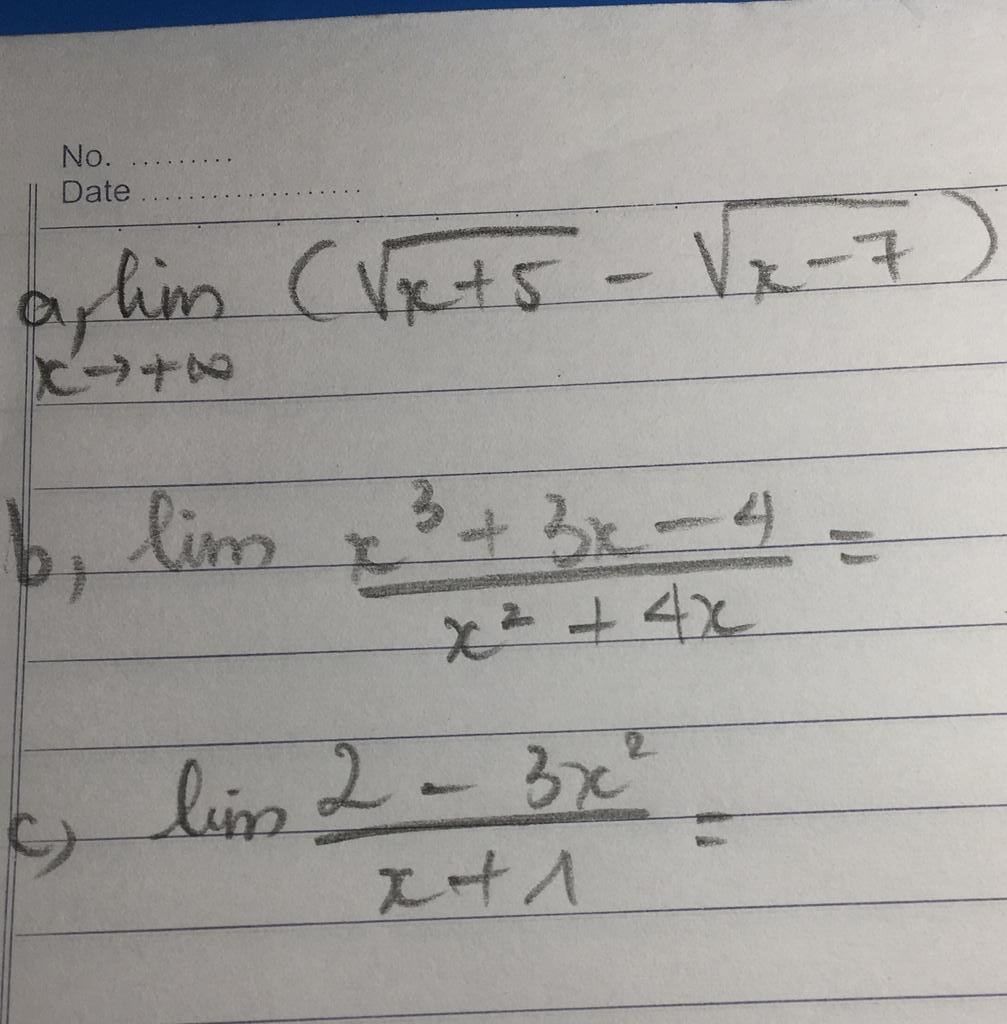 No. .........
Date ...................
a, lim (√(x+5) - √(x-7))
x→+∞
b, lim (x³ + 3x - 4)/(x² + 4x) =
c) lim (2 - 3x²)/(x + 1) =